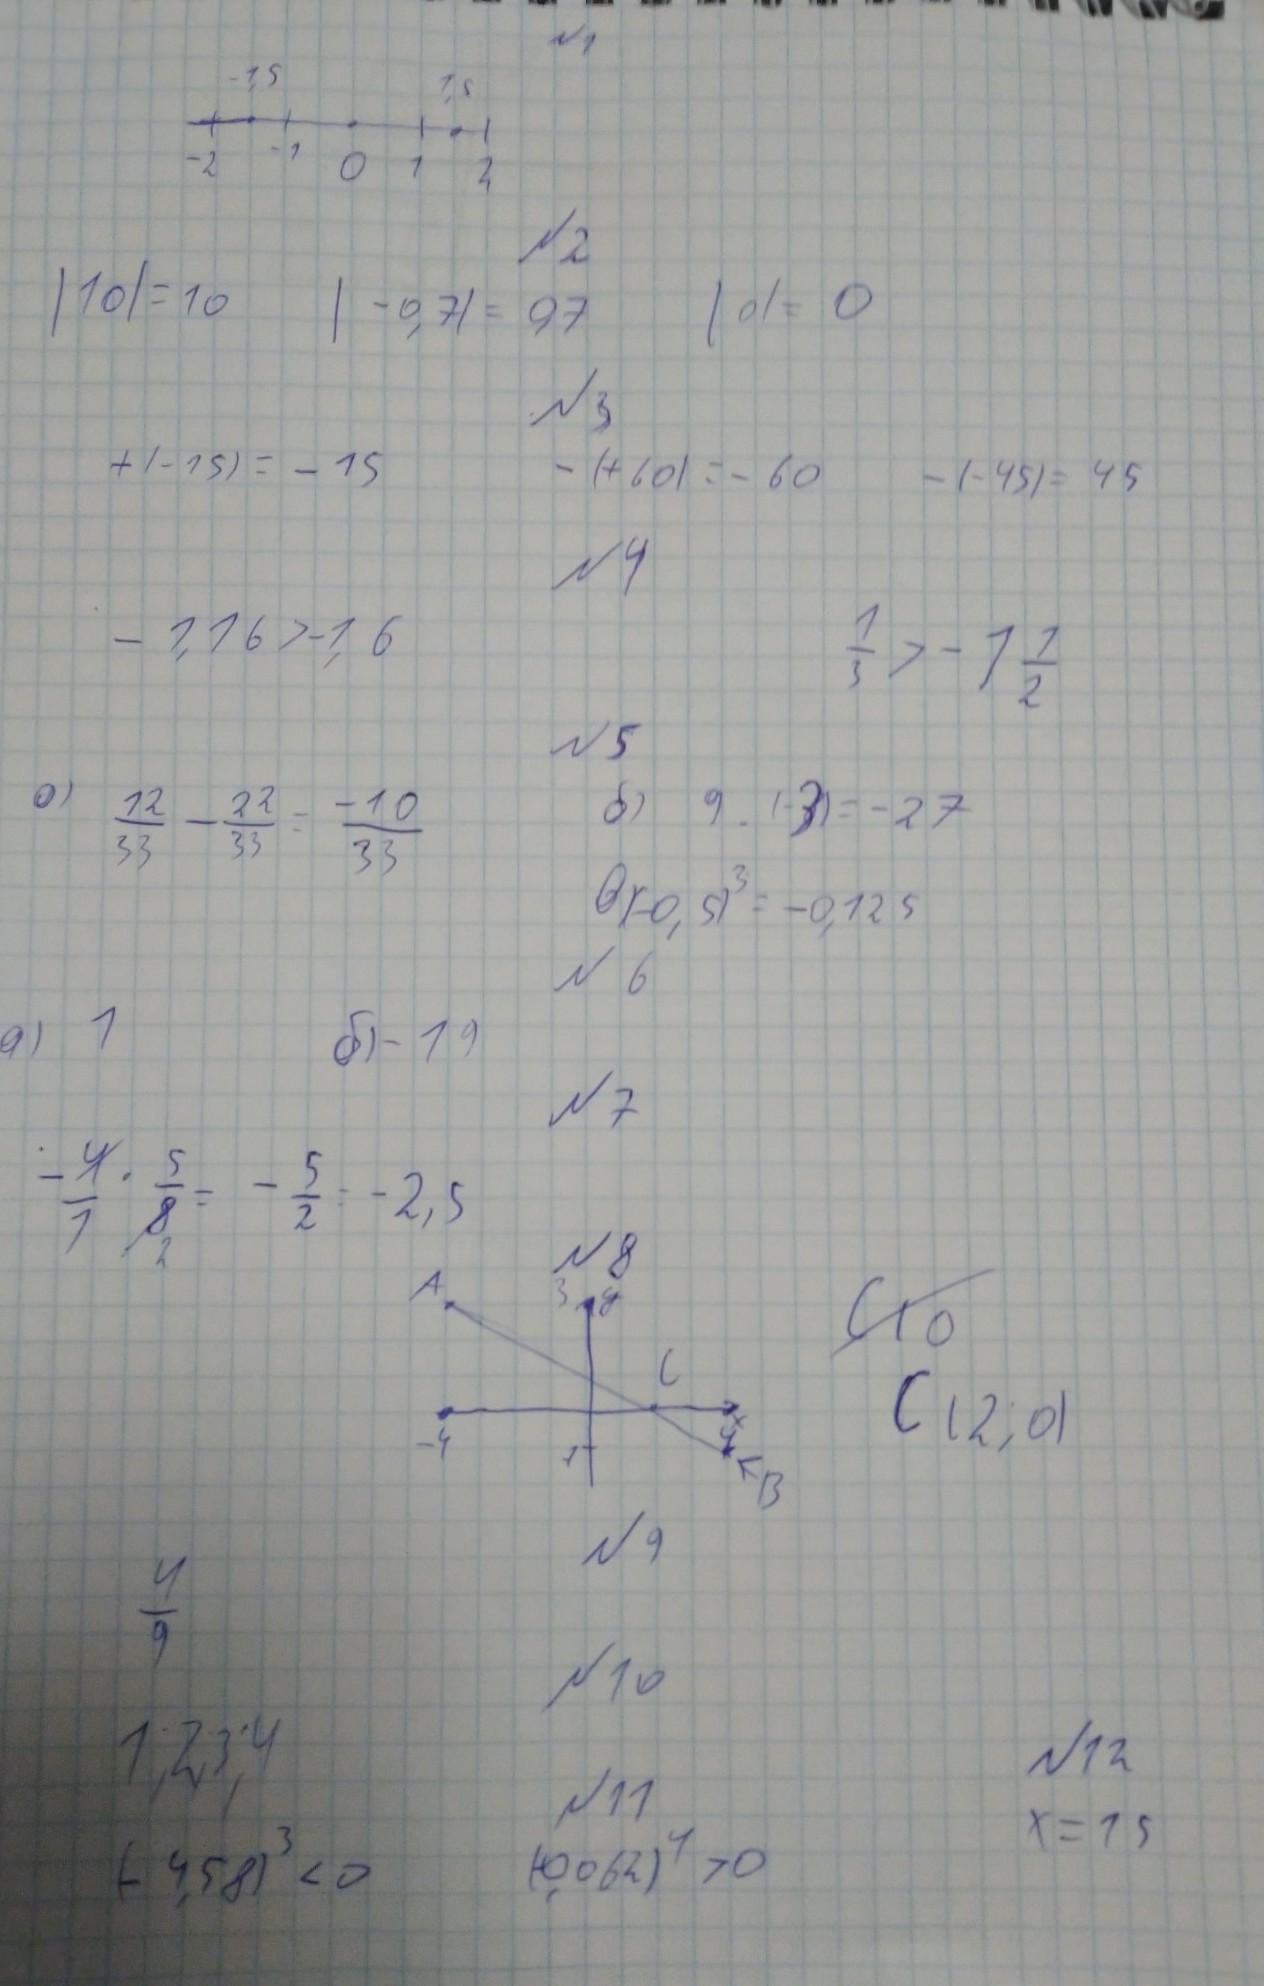 №1
-1,5 1,5
-2 -1 0 1 2
№2
|10|=10 |-0,7|= 0,7 |0|= 0
№3
+(-15)= -15 -(+60)=-60 -(-45)=45
№4
-1,16>-1,6 1/3 > -1 1/2
№5
а) 12/33 - 22/33 = -10/33 б) 9·(-3)=-27
в)(-0,5)³=-0,125
№6
а) 1 б)-19
№7
-4/1 · 5/8 = -5/2 = -2,5
2
№8
A 3 y
C
C(2;0)
-4 x 4
1
B
№9
4/9
№10
1,2,3,4
№12
№11
x=15
(-4,58)³<0 (-0,062)⁴>0